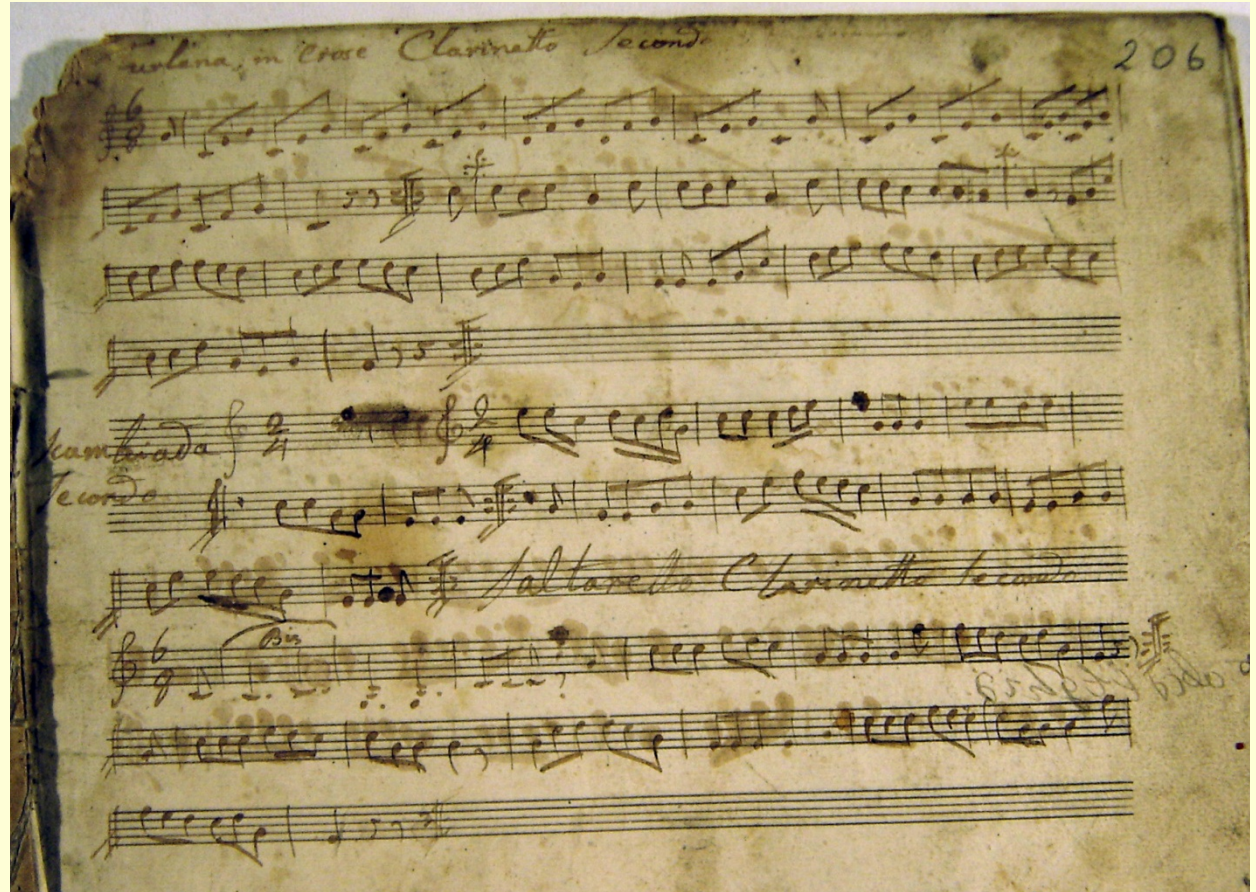 Furlana in Crose Clarinetto Secondo
206
6
8
2
4
2
4
Secondo
Saltarello Clarinetto Secondo
6
8
Bis